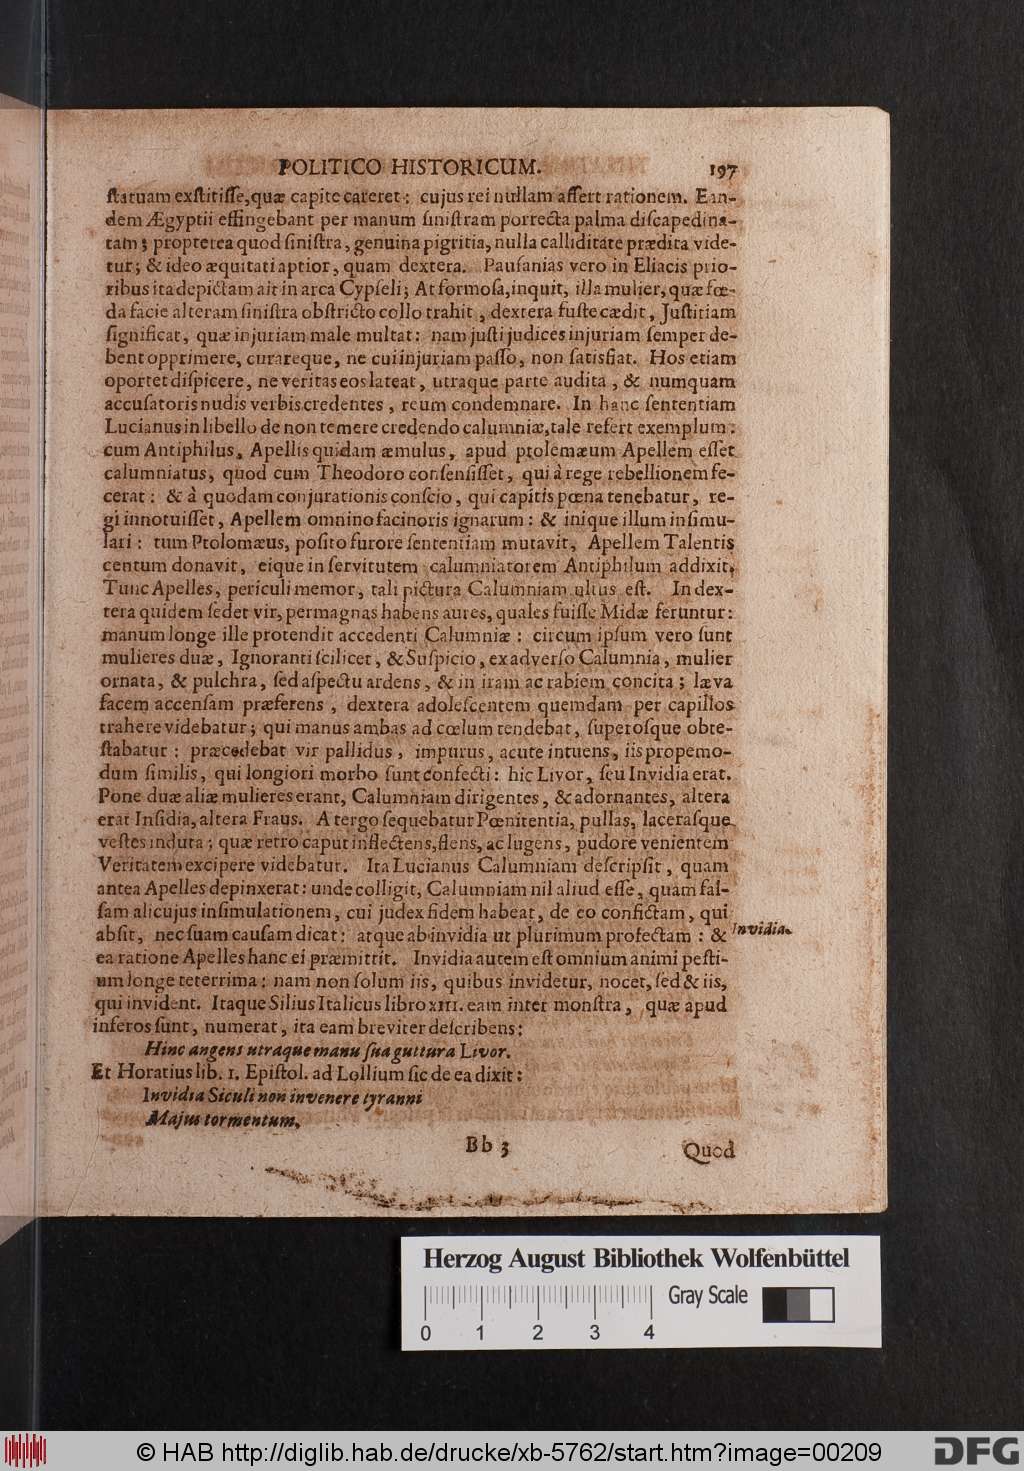 POLITICO HISTORICUM. 197
ſtatuam exſtitiſſe, quæ capite careret; cujus rei nullam aſſert rationem. Ean-
dem Ægyptii effingebant per manum ſiniſtram porrecta palma diſcapedina-
tam; propterea quod ſiniſtra, genuina pigritia, nulla calliditate prædita vide-
tur; & ideo æquitati aptior, quam dextera. Pauſanias vero in Eliacis prio-
ribus ita depictam ait in arca Cypſeli; At formoſa, inquit, illa mulier, quæ fœ-
da facie alteram ſiniſtra obſtricto collo trahit, dextera fuſte cædit, Juſtitiam
ſignificat, quæ injuriam male multat: nam juſti judices injuriam ſemper de-
bent opprimere, curareque, ne cui injuriam paſſo, non ſatisfiat. Hos etiam
oportet diſpicere, ne veritas eos lateat, utraque parte audita, & numquam
accuſatoris nudis verbis credentes, reum condemnare. In hanc ſententiam
Lucianus in libello de non temere credendo calumniæ, tale refert exemplum:
cum Antiphilus, Apellis quidam æmulus, apud ptolemæum Apellem eſſet
calumniatus, quod cum Theodoro conſenſiſſet, qui à rege rebellionem fe-
cerat: & à quodam conjurationis conſcio, qui capitis pœna tenebatur, re-
gi innotuiſſet, Apellem omnino facinoris ignarum: & inique illum inſimu-
lari: tum Ptolomæus, poſito furore ſententiam mutavit, Apellem Talentis
centum donavit, eique in ſervitutem calumniatorem Antiphilum addixit.
Tunc Apelles, periculi memor, tali pictura Calumniam ultus eſt. In dex-
tera quidem ſedet vir, permagnas habens aures, quales fuiſſe Midæ feruntur:
manum longe ille protendit accedenti Calumniæ: circum ipſum vero ſunt
mulieres duæ, Ignoranti ſcilicet, & Suſpicio, ex adverſo Calumnia, mulier
ornata, & pulchra, ſed aſpectu ardens, & in iram ac rabiem concita; læva
facem accenſam præferens, dextera adoleſcentem quemdam per capillos
trahere videbatur; qui manus ambas ad cœlum tendebat, ſuperoſque obte-
ſtabatur: præcedebat vir pallidus, impurus, acute intuens, iis propemo-
dum ſimilis, qui longiori morbo ſunt confecti: hic Livor, ſeu Invidia erat.
Pone duæ aliæ mulieres erant, Calumniam dirigentes, & adornantes, altera
erat Inſidia, altera Fraus. A tergo ſequebatur Pœnitentia, pullas, laceraſque
veſtes induta; quæ retro caput inflectens, flens, ac lugens, pudore venientem
Veritatem excipere videbatur. Ita Lucianus Calumniam deſcripſit, quam
antea Apelles depinxerat: unde colligit, Calumniam nil aliud eſſe, quam fal-
ſam alicujus inſimulationem, cui judex fidem habeat, de eo confictam, qui
abſit, nec ſuam cauſam dicat: atque ab invidia ut plurimum profectam: & Invidia.
ea ratione Apelles hanc ei præmittit. Invidia autem eſt omnium animi peſti-
um longe teterrima: nam non ſolum iis, quibus invidetur, nocet, ſed & iis,
qui invident. Itaque Silius Italicus libro XIII. eam inter monſtra, quæ apud
inferos ſunt, numerat, ita eam breviter deſcribens:
Hinc angens utraque manu ſua guttura Livor.
Et Horatius lib. 1. Epiſtol. ad Lollium ſic de ea dixit:
Invidia Siculi non invenere tyranni
Majus tormentum.
Bb 3 Quod
Herzog August Bibliothek Wolfenbüttel
Gray Scale
0 1 2 3 4
© HAB http://diglib.hab.de/drucke/xb-5762/start.htm?image=00209 DFG